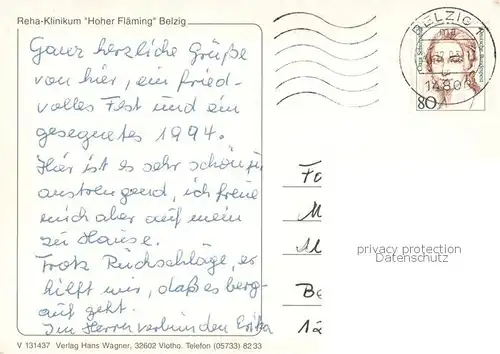 Reha-Klinikum "Hoher Fläming" Belzig
Ganz herzliche Grüße
von hier, ein fried-
volles Fest und ein
gesegnetes 1994.
Hier ist es sehr schön,
anstrengend, ich freue
mich aber auf mein
zu Hause.
Trotz Rückschläge, es
hilft mir, daß es berg-
auf geht.
Im Herrn verbunden Erika
V 131437 Verlag Hans Wagner, 32602 Vlotho. Telefon (05733) 82 33
BELZIG
1480
80
Deutsche Bundespost
Fo
M
Be
12
privacy protection
Datenschutz